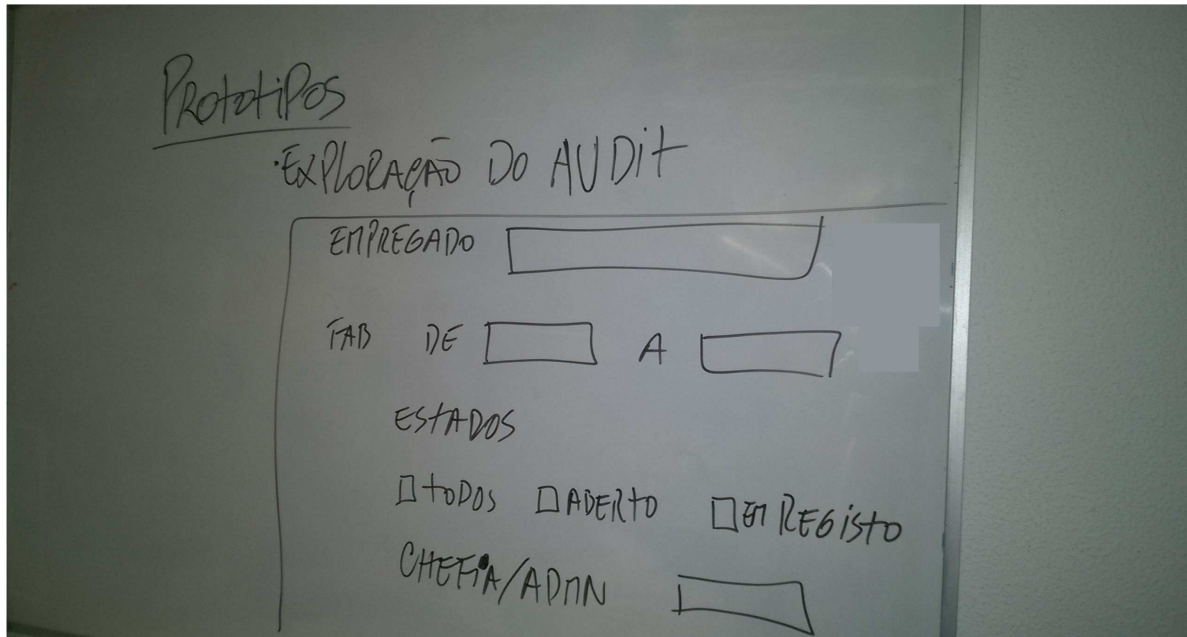 PROTOTIPOS
·EXPLORAÇÃO DO AUDIT
EMPREGADO
FAB DE A
ESTADOS
TODOS ABERTO EM REGISTO
CHEFIA/ADMN